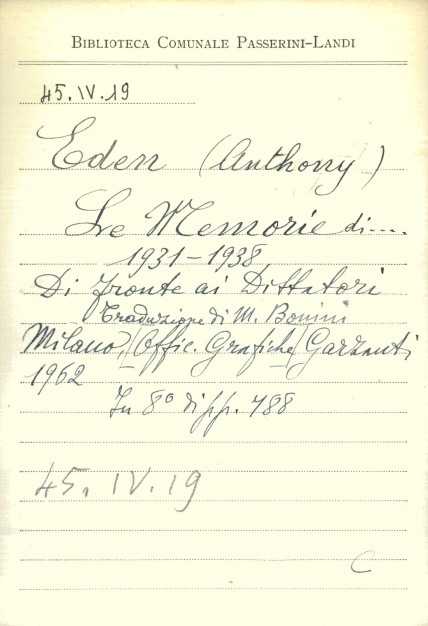 BIBLIOTECA COMUNALE PASSERINI-LANDI
45.IV.19
Eden (Anthony)
Le Memorie di....
1931-1938
Di fronte ai Dittatori
Traduzione di M. Bonini
Milano, (Offic. Grafiche) Garzanti
1962
In 8° di pp. 788
45.IV.19
C